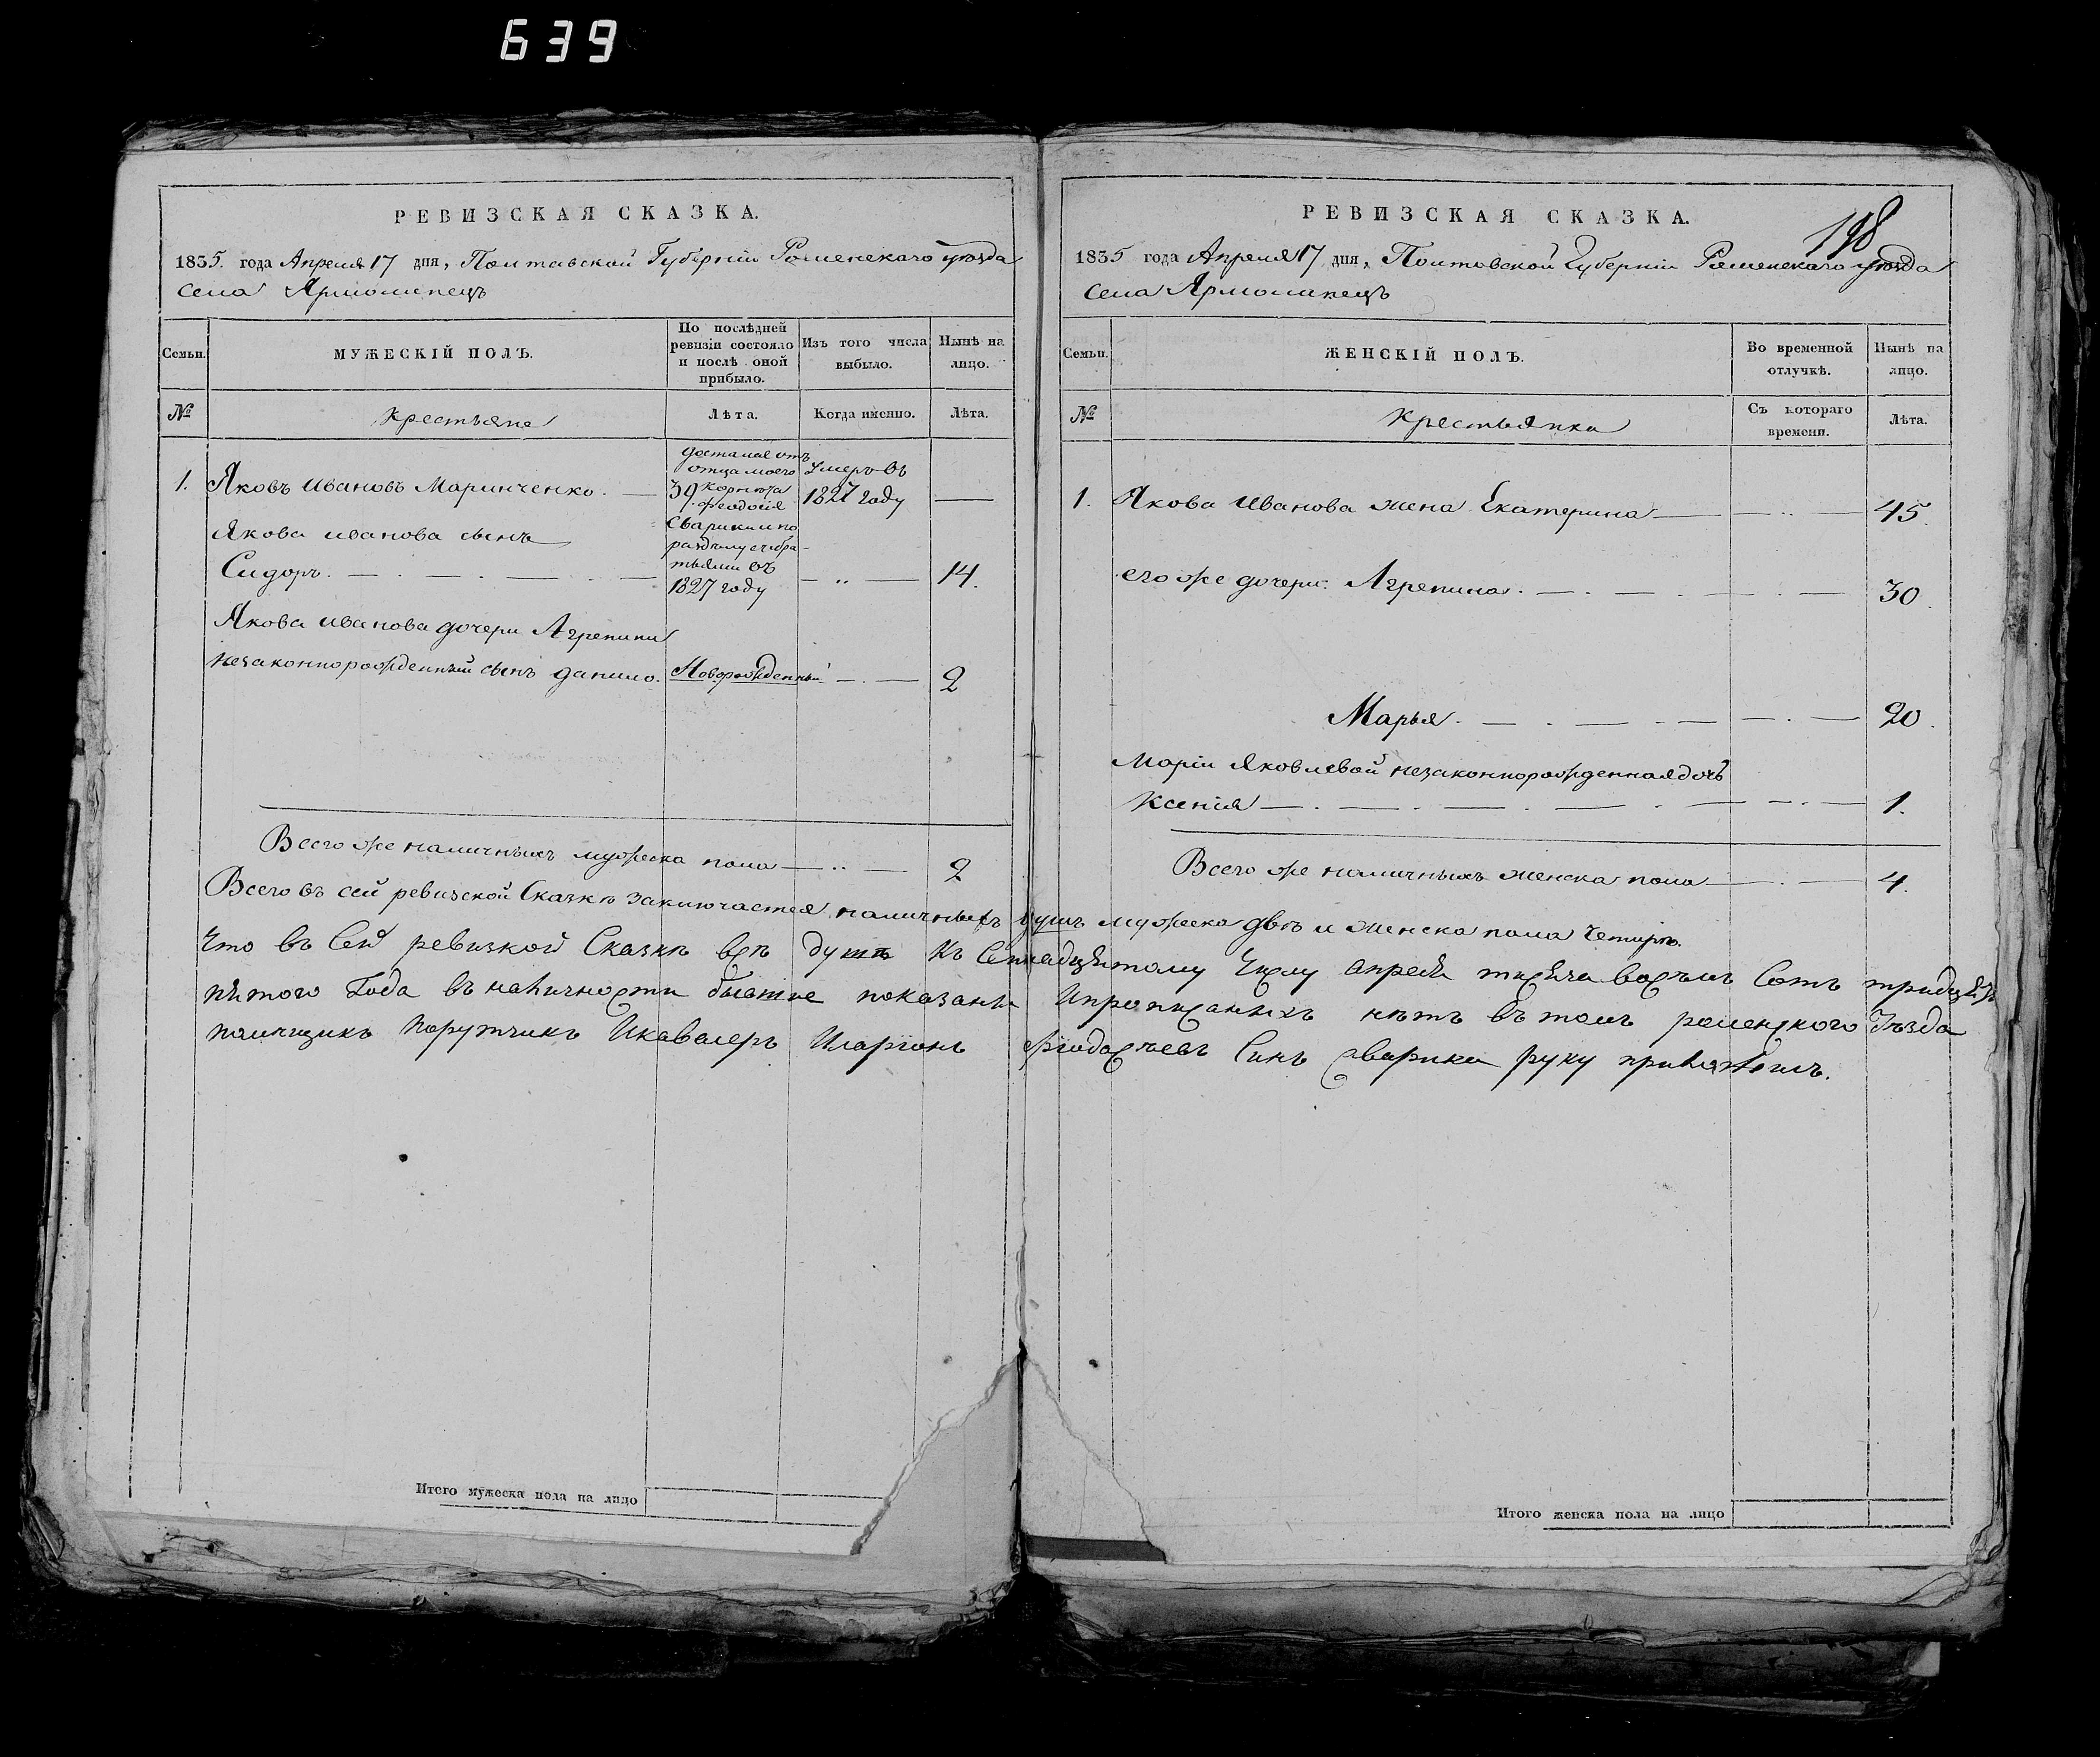 639
РЕВИЗСКАЯ СКАЗКА.
1835. года Апреля 17 дня, Полтавской Губерніи Роменскаго уезда
села Ярмолинецъ
Семьи.
МУЖЕСКІЙ ПОЛЪ.
По послѣдней ревизіи состояло и послѣ оной прибыло.
Изъ того числа выбыло.
Нынѣ на лицо.
№
Крестьяне
Лѣта.
Когда именно.
Лѣта.
достался отъ
отца моего
1. Яковъ Ивановъ Маринченко. — 39 Корнета Умеръ въ 1827 году —
Феодосія
Якова иванова сынъ
Сварики и по
разделу с бра-
тьями въ
1827 году
Сидоръ. — 14.
Якова иванова дочери Агрепини
незаконнорожденный сынъ данило. Новорожденный — 2
Всего же наличныхъ мужеска пола — 2
198
РЕВИЗСКАЯ СКАЗКА.
1835 года Апреля 17 дня, Полтовской Губерніи Роменскаго уезда
села Ярмолинецъ
Семьи.
ЖЕНСКІЙ ПОЛЪ.
Во временной отлучкѣ.
Нынѣ на лицо.
№
Крестьянки
Съ котораго времени.
Лѣта.
1. Якова Иванова жена Екатерина — 45.
его же дочери: Агрепина. — 30.
Марья. — 20.
Маріи Яковлевой незаконнорожденная дочь
Ксенія — 1.
Всего же наличныхъ женска пола — 4.
Всего въ сей ревизской Сказкѣ заключается наличныхъ душъ мужеска двѣ и женска пола четирѣ.
Что въ Сей ревизкой Сказкѣ всѣ душѣ къ Семнадцятому Числу апреля тисяча восъмъ Сотъ тридцять
пятого Года въ наличности бывшие показаны Ипрописанихъ нѣтъ въ томъ роменского Уѣзда
помещикъ Порутчикъ Икавалеръ Иларіонъ Фіодосѣевъ Синъ Сварика руку приложилъ.
Итого мужеска пола на лицо
Итого женска пола на лицо